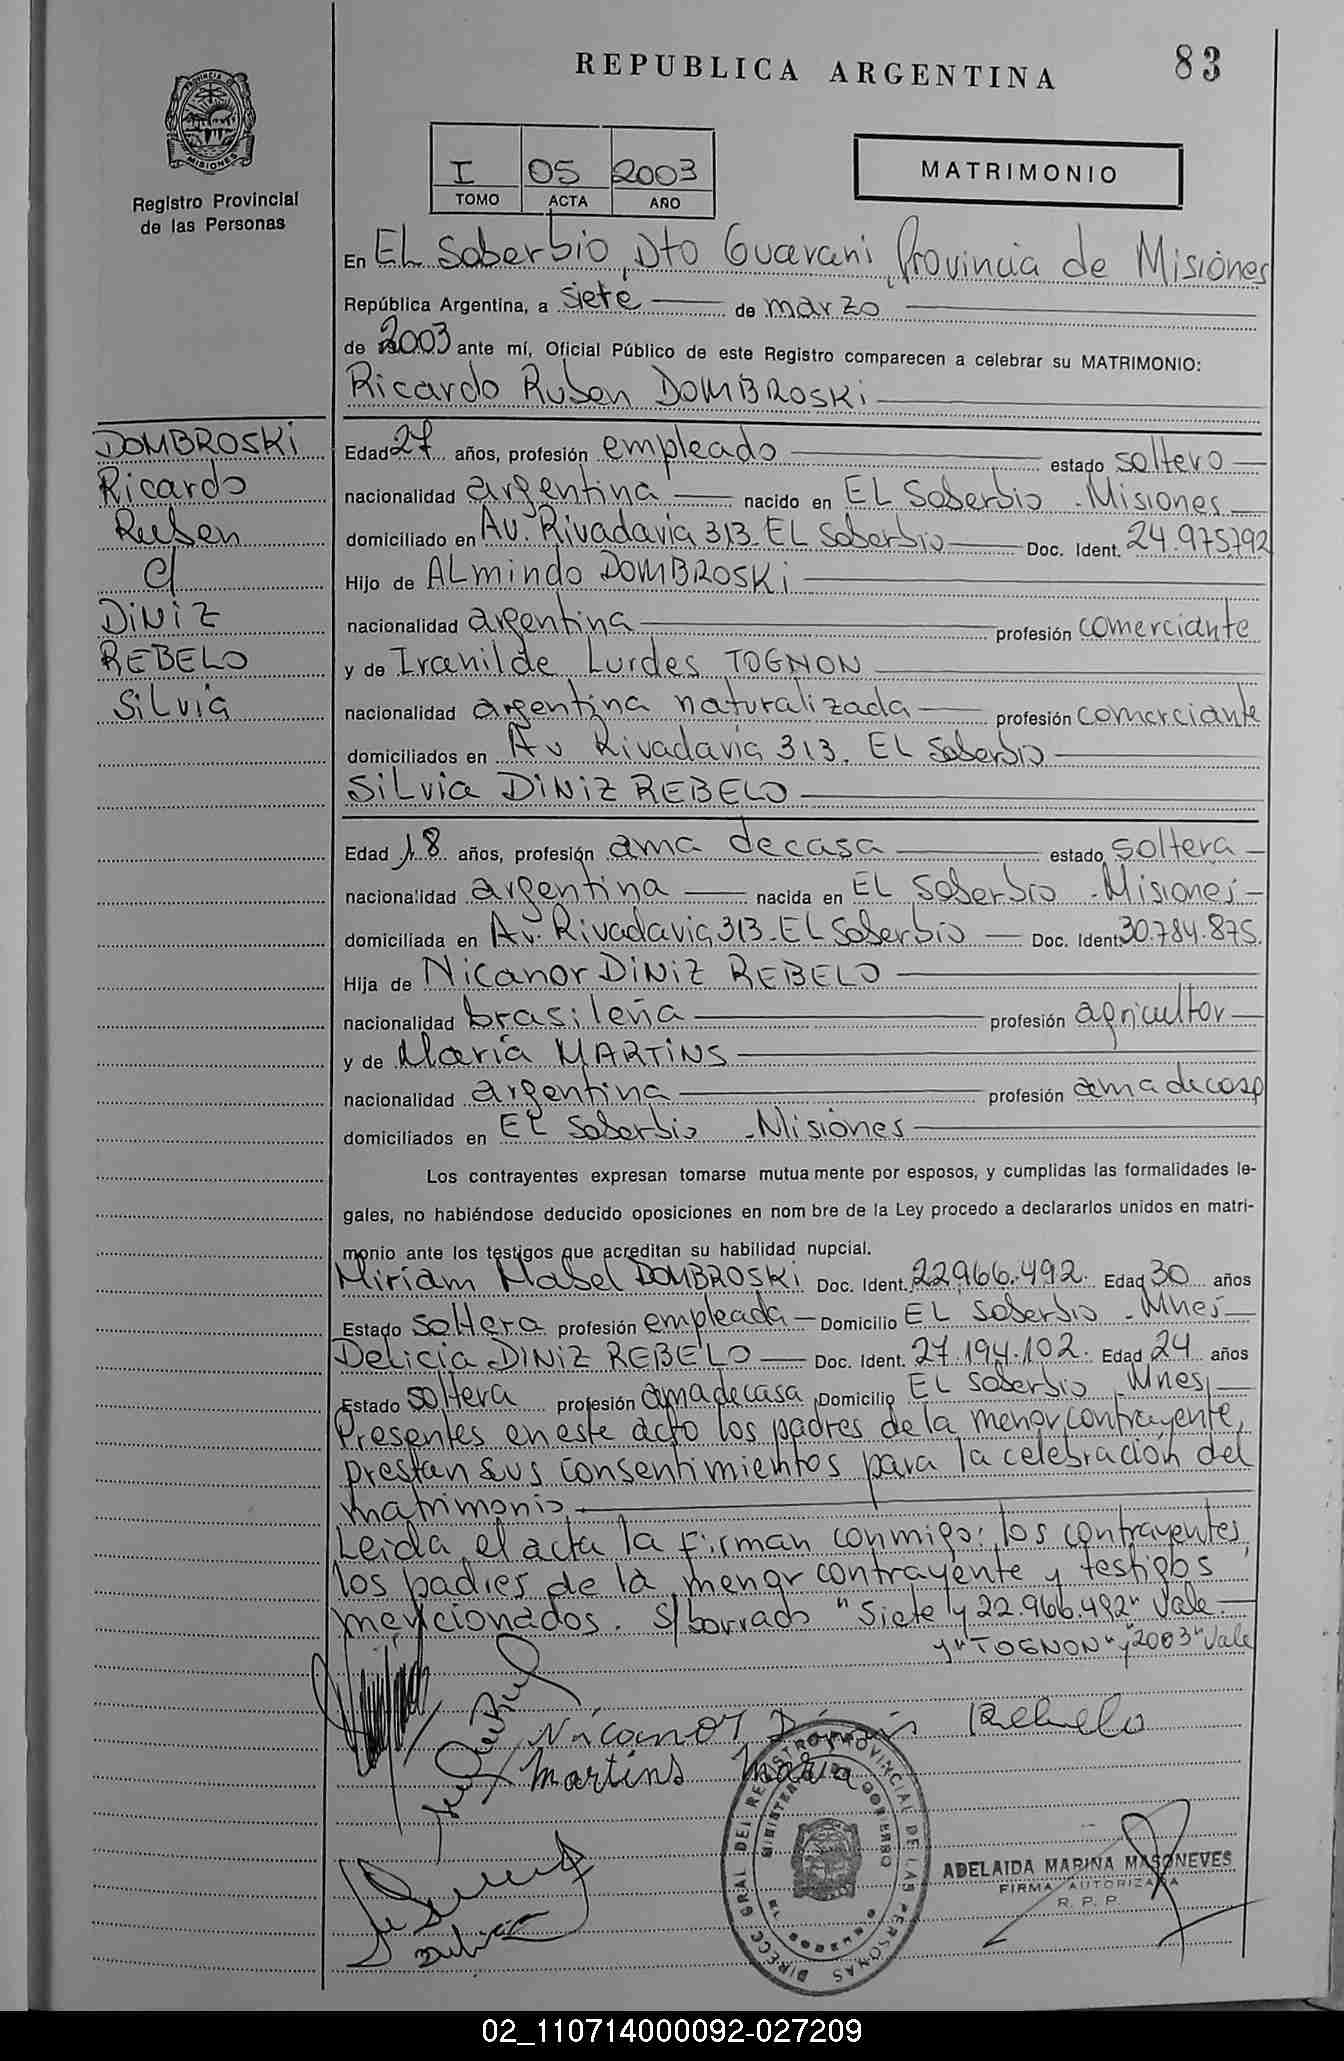 REPUBLICA ARGENTINA
83
PROVINCIA D
MISIONES
Registro Provincial
de las Personas
I 05 2003
TOMO ACTA AÑO
MATRIMONIO
En EL Soberbio, Dto Guarani, Provincia de Misiones
República Argentina, a siete de marzo
de 2003 ante mí, Oficial Público de este Registro comparecen a celebrar su MATRIMONIO:
Ricardo Ruben DOMBROSKi
DOMBROSKi
Ricardo
Ruben
c/
DiNiZ
REBELO
SiLvia
Edad 27 años, profesión empleado estado soltero
nacionalidad argentina nacido en EL Soberbio - Misiones
domiciliado en Av. Rivadavia 313. EL Soberbio Doc. Ident. 24.975792
Hijo de ALmindo DOMBROSKi
nacionalidad argentina profesión comerciante
y de Iranilde Lurdes TOGNON
nacionalidad argentina naturalizada profesión comerciante
domiciliados en Av Rivadavia 313. EL Soberbio
SiLvia DiNiZ REBELO
Edad 18 años, profesión ama decasa estado soltera
nacionalidad argentina nacida en EL Soberbio - Misiones
domiciliada en Av. Rivadavia 313 - EL Soberbio Doc. Ident 30.784.875.
Hija de Nicanor DiNiZ REBELO
nacionalidad brasileña profesión agricultor
y de María MARTiNS
nacionalidad argentina profesión ama decasa
domiciliados en EL Soberbio - Misiones
Los contrayentes expresan tomarse mutua mente por esposos, y cumplidas las formalidades le-
gales, no habiéndose deducido oposiciones en nom bre de la Ley procedo a declararlos unidos en matri-
monio ante los testigos que acreditan su habilidad nupcial.
Miriam Mabel DOMBROSKi Doc. Ident. 22.966.492. Edad 30 años
Estado soltera profesión empleada Domicilio EL Soberbio - Mnes
Delicia DINIZ REBELO Doc. Ident. 27.194.102. Edad 24 años
Estado soltera profesión ama decasa Domicilio EL Soberbio, Mnes
Presentes en este acto los padres de la menor contrayente,
prestan sus consentimientos para la celebración del
matrimonio
Leida el acta la firman conmigo: los contrayentes,
los padres de la menor contrayente y testigos
mencionados. S/borrado "Siete y 22.966.492" Vale.
y "TOGNON" y "2003" Vale
Nicanor Diniz Rebelo
Martins Maria
DIRECC GRAL DEL REGISTRO PROVINCIAL DE LAS PERSONAS
MINISTERIO DE GOBIERNO
EL SOBERBIO
ADELAIDA MARINA MASONEVES
FIRMA AUTORIZADA
R. P. P.
02_110714000092-027209